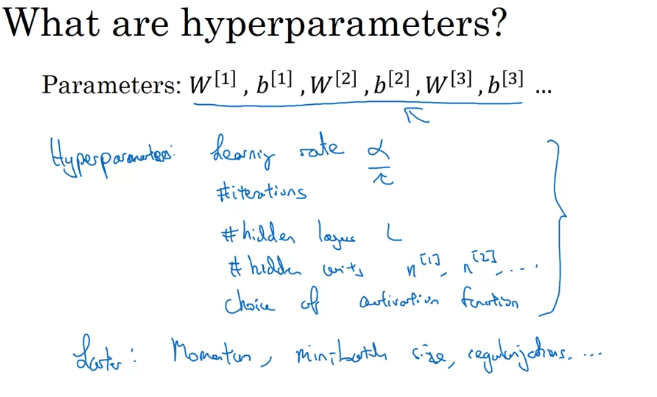 What are hyperparameters?
Parameters: W^[1], b^[1], W^[2], b^[2], W^[3], b^[3] ...
Hyperparameters: Learning rate α
#iterations
#hidden layers L
#hidden units n^[1], n^[2], ....
Choice of activation function
Later: Momentum, mini-batch size, regularizations, ...